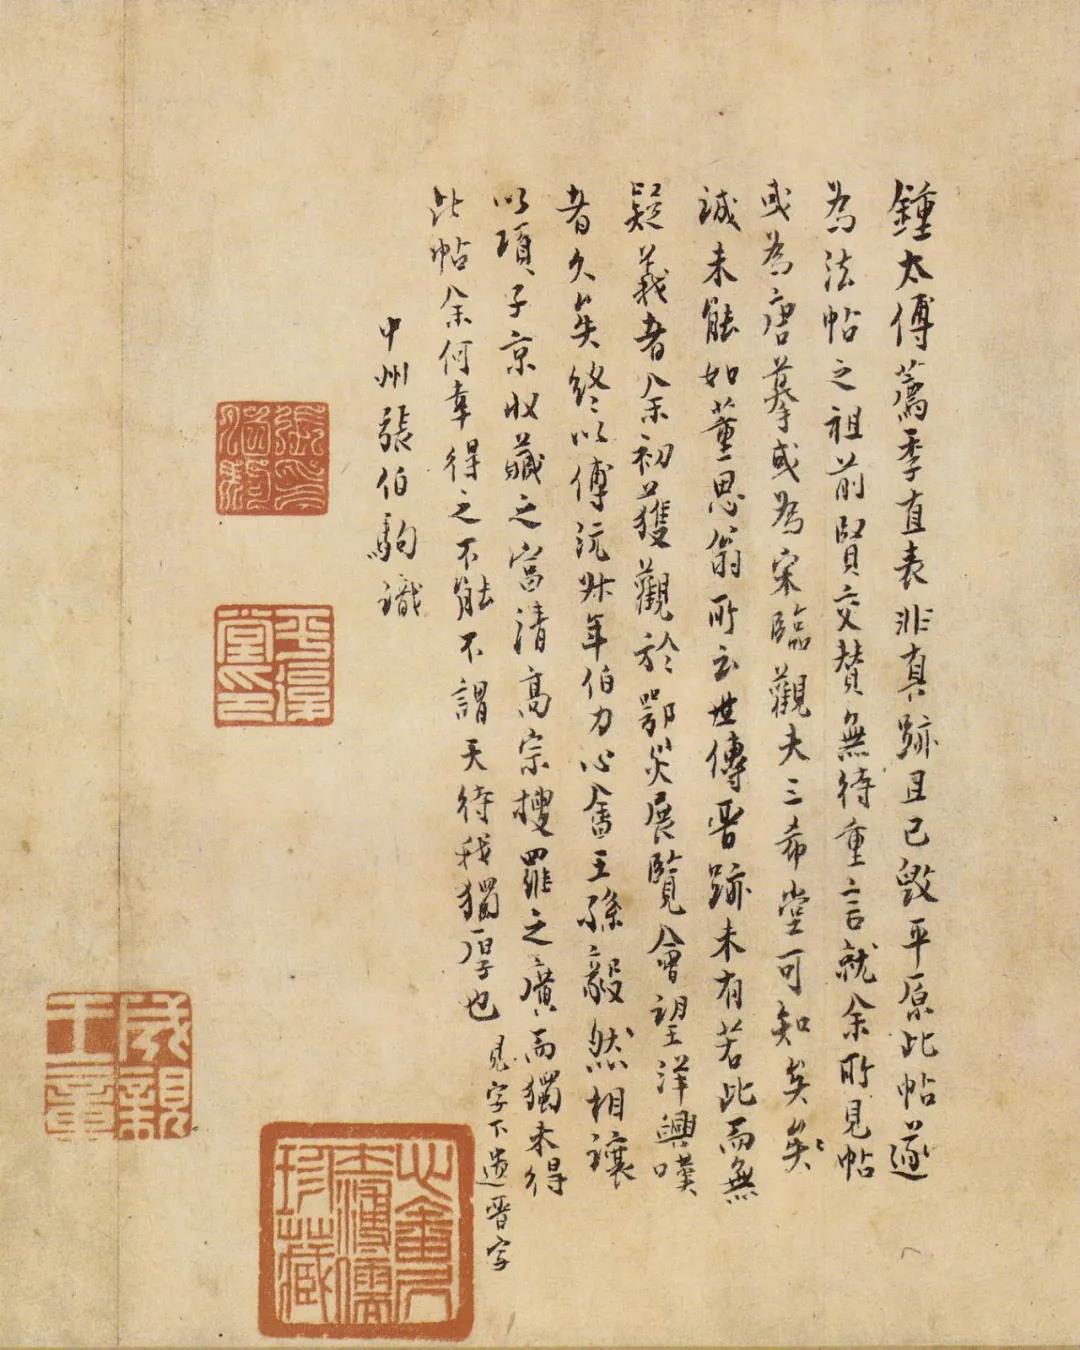 鍾太傅薦季直表非真跡且已毀平原此帖遂
為法帖之祖前賢交贊無待重言就余所見帖
或為唐摹或為宋臨觀夫三希堂可知矣矣
誠未能如董思翁所云世傳晉跡未有若此而無
疑義者余初獲觀於鄂災展覽會望洋興嘆
者久矣終以傅沅叔年伯力心畬王孫毅然相讓
以項子京收藏之富清高宗搜羅之廣而獨未得
此帖余何幸得之不能不謂天待我獨厚也
見字下遺晉字
中州張伯駒識
張伯駒印
平復堂印
成親王章
心畬又字溥儒珍藏